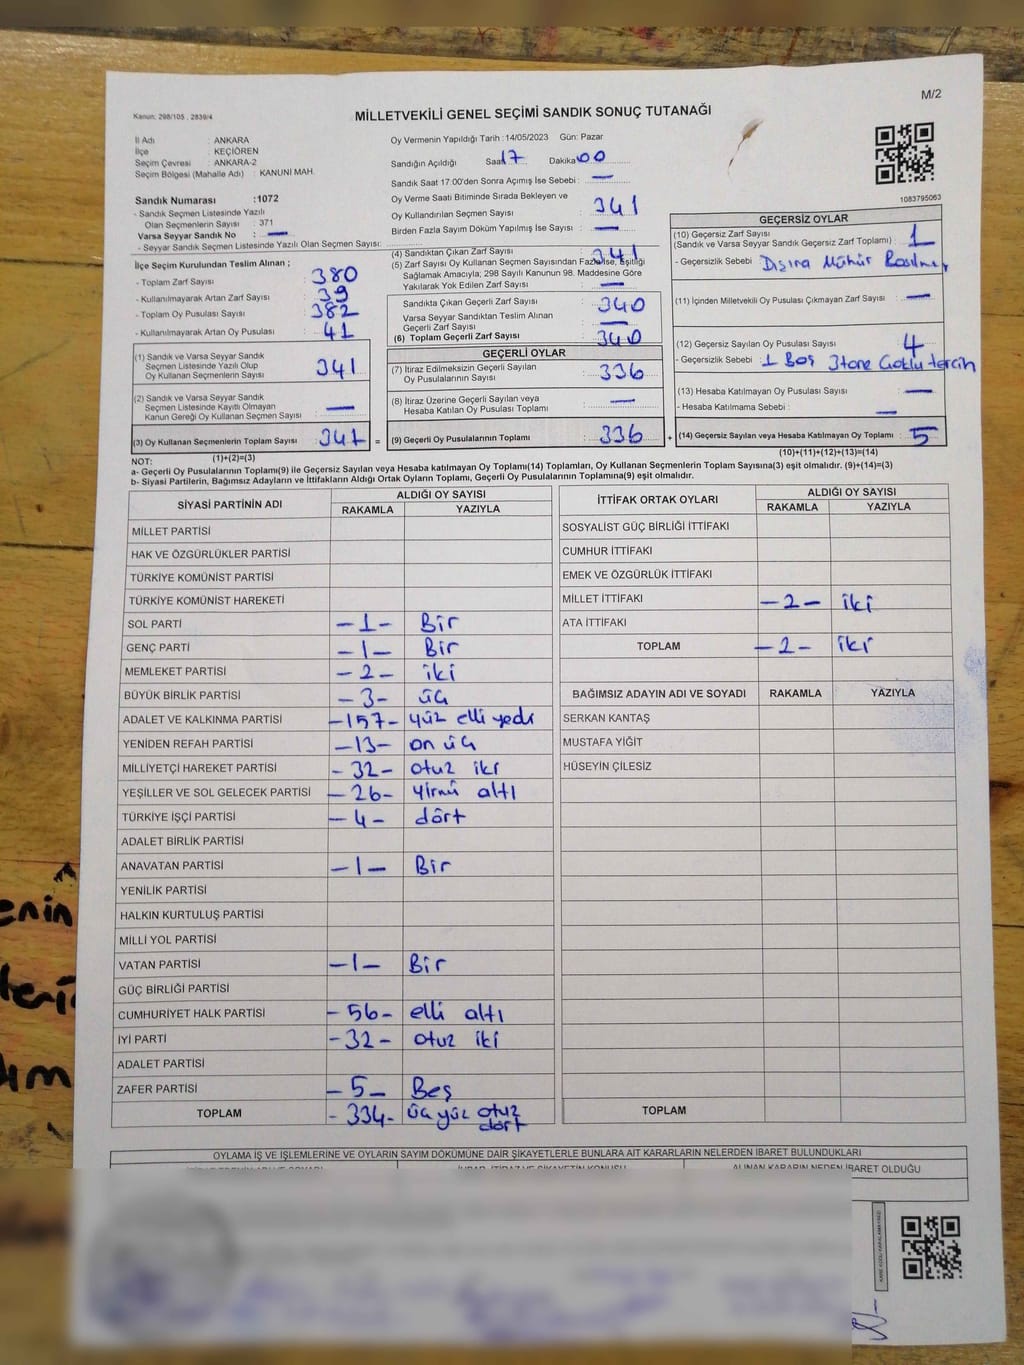 M/2
Kanun: 298/105 , 2839/4
MİLLETVEKİLİ GENEL SEÇİMİ SANDIK SONUÇ TUTANAĞI
İl Adı : ANKARA
İlçe : KEÇİÖREN
Seçim Çevresi : ANKARA-2
Seçim Bölgesi (Mahalle Adı) : KANUNİ MAH.
Sandık Numarası :1072
- Sandık Seçmen Listesinde Yazılı
Olan Seçmenlerin Sayısı : 371
Varsa Seyyar Sandık No : —
- Seyyar Sandık Seçmen Listesinde Yazılı Olan Seçmen Sayısı:
İlçe Seçim Kurulundan Teslim Alınan ;
- Toplam Zarf Sayısı : 380
- Kullanılmayarak Artan Zarf Sayısı : 39
- Toplam Oy Pusulası Sayısı : 382
- Kullanılmayarak Artan Oy Pusulası : 41
(1) Sandık ve Varsa Seyyar Sandık
Seçmen Listesinde Yazılı Olup
Oy Kullanan Seçmenlerin Sayısı : 341
(2) Sandık ve Varsa Seyyar Sandık
Seçmen Listesinde Kayıtlı Olmayan
Kanun Gereği Oy Kullanan Seçmen Sayısı : —
(3) Oy Kullanan Seçmenlerin Toplam Sayısı : 341 =
(1)+(2)=(3)
Oy Vermenin Yapıldığı Tarih : 14/05/2023 Gün: Pazar
Sandığın Açıldığı Saat 17 Dakika 00
Sandık Saat 17:00'den Sonra Açımış İse Sebebi : —
Oy Verme Saati Bitiminde Sırada Bekleyen ve
Oy Kullandırılan Seçmen Sayısı : 341
Birden Fazla Sayım Döküm Yapılmış İse Sayısı : —
(4) Sandıktan Çıkan Zarf Sayısı : 341
(5) Zarf Sayısı Oy Kullanan Seçmen Sayısından Fazla İse, Eşitliği
Sağlamak Amacıyla; 298 Sayılı Kanunun 98. Maddesine Göre
Yakılarak Yok Edilen Zarf Sayısı : —
Sandıkta Çıkan Geçerli Zarf Sayısı : 340
Varsa Seyyar Sandıktan Teslim Alınan
Geçerli Zarf Sayısı : —
(6) Toplam Geçerli Zarf Sayısı : 340
GEÇERLİ OYLAR
(7) İtiraz Edilmeksizin Geçerli Sayılan
Oy Pusulalarının Sayısı : 336
(8) İtiraz Üzerine Geçerli Sayılan veya
Hesaba Katılan Oy Pusulası Toplamı : —
(9) Geçerli Oy Pusulalarının Toplamı : 336 +
1083795063
GEÇERSİZ OYLAR
(10) Geçersiz Zarf Sayısı : 1
(Sandık ve Varsa Seyyar Sandık Geçersiz Zarf Toplamı)
- Geçersizlik Sebebi : Dışına Mühür
(11) İçinden Milletvekili Oy Pusulası Çıkmayan Zarf Sayısı : —
(12) Geçersiz Sayılan Oy Pusulası Sayısı : 4
- Geçersizlik Sebebi : 1 Boş 3tane Çoklu tercih
(13) Hesaba Katılmayan Oy Pusulası Sayısı : —
- Hesaba Katılmama Sebebi : —
(14) Geçersiz Sayılan veya Hesaba Katılmayan Oy Toplamı : 5
(10)+(11)+(12)+(13)=(14)
NOT:
a- Geçerli Oy Pusulalarının Toplamı(9) ile Geçersiz Sayılan veya Hesaba Katılmayan Oy Toplamı(14) Toplamları, Oy Kullanan Seçmenlerin Toplam Sayısına(3) eşit olmalıdır. (9)+(14)=(3)
b- Siyasi Partilerin, Bağımsız Adayların ve İttifakların Aldığı Ortak Oyların Toplamı, Geçerli Oy Pusulalarının Toplamına(9) eşit olmalıdır.
SİYASİ PARTİNİN ADI ALDIĞI OY SAYISI
RAKAMLA YAZIYLA
MİLLET PARTİSİ
HAK VE ÖZGÜRLÜKLER PARTİSİ
TÜRKİYE KOMÜNİST PARTİSİ
TÜRKİYE KOMÜNİST HAREKETİ
SOL PARTİ -1- Bir
GENÇ PARTİ -1- Bir
MEMLEKET PARTİSİ -2- iki
BÜYÜK BİRLİK PARTİSİ -3- üç
ADALET VE KALKINMA PARTİSİ -157- yüz elli yedi
YENİDEN REFAH PARTİSİ -13- on üç
MİLLİYETÇİ HAREKET PARTİSİ -32- otuz iki
YEŞİLLER VE SOL GELECEK PARTİSİ -26- yirmi altı
TÜRKİYE İŞÇİ PARTİSİ -4- dört
ADALET BİRLİK PARTİSİ
ANAVATAN PARTİSİ -1- Bir
YENİLİK PARTİSİ
HALKIN KURTULUŞ PARTİSİ
MİLLİ YOL PARTİSİ
VATAN PARTİSİ -1- Bir
GÜÇ BİRLİĞİ PARTİSİ
CUMHURİYET HALK PARTİSİ -56- elli altı
İYİ PARTİ -32- otuz iki
ADALET PARTİSİ
ZAFER PARTİSİ -5- Beş
TOPLAM -334- üç yüz otuz dört
İTTİFAK ORTAK OYLARI ALDIĞI OY SAYISI
RAKAMLA YAZIYLA
SOSYALİST GÜÇ BİRLİĞİ İTTİFAKI
CUMHUR İTTİFAKI
EMEK VE ÖZGÜRLÜK İTTİFAKI
MİLLET İTTİFAKI -2- iki
ATA İTTİFAKI
TOPLAM -2- iki
BAĞIMSIZ ADAYIN ADI VE SOYADI RAKAMLA YAZIYLA
SERKAN KANTAŞ
MUSTAFA YİĞİT
HÜSEYİN ÇİLESİZ
TOPLAM
OYLAMA İŞ VE İŞLEMLERİNE VE OYLARIN SAYIM DÖKÜMÜNE DAİR ŞİKAYETLERLE BUNLARA AİT KARARLARIN NELERDEN İBARET BULUNDUKLARI
ALINAN KARARIN NEDEN İBARET OLDUĞU